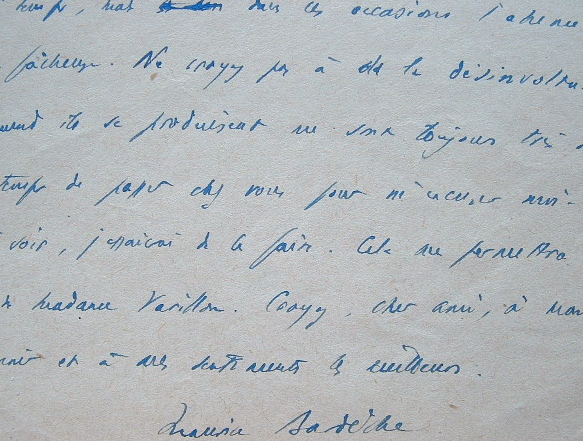 temps, mais dans ces occasions j'
fâcheux. Ne croyez pas à de la désinvoltu
quand ils se produisent me sont toujours très
temps de passer chez vous pour m'excuser moi-
voir, j'essaierai de le faire. Cela me permettra
madame Varillon. Croyez, cher ami, à mon
et à mes sentiments les meilleurs.
Maurice Bardèche